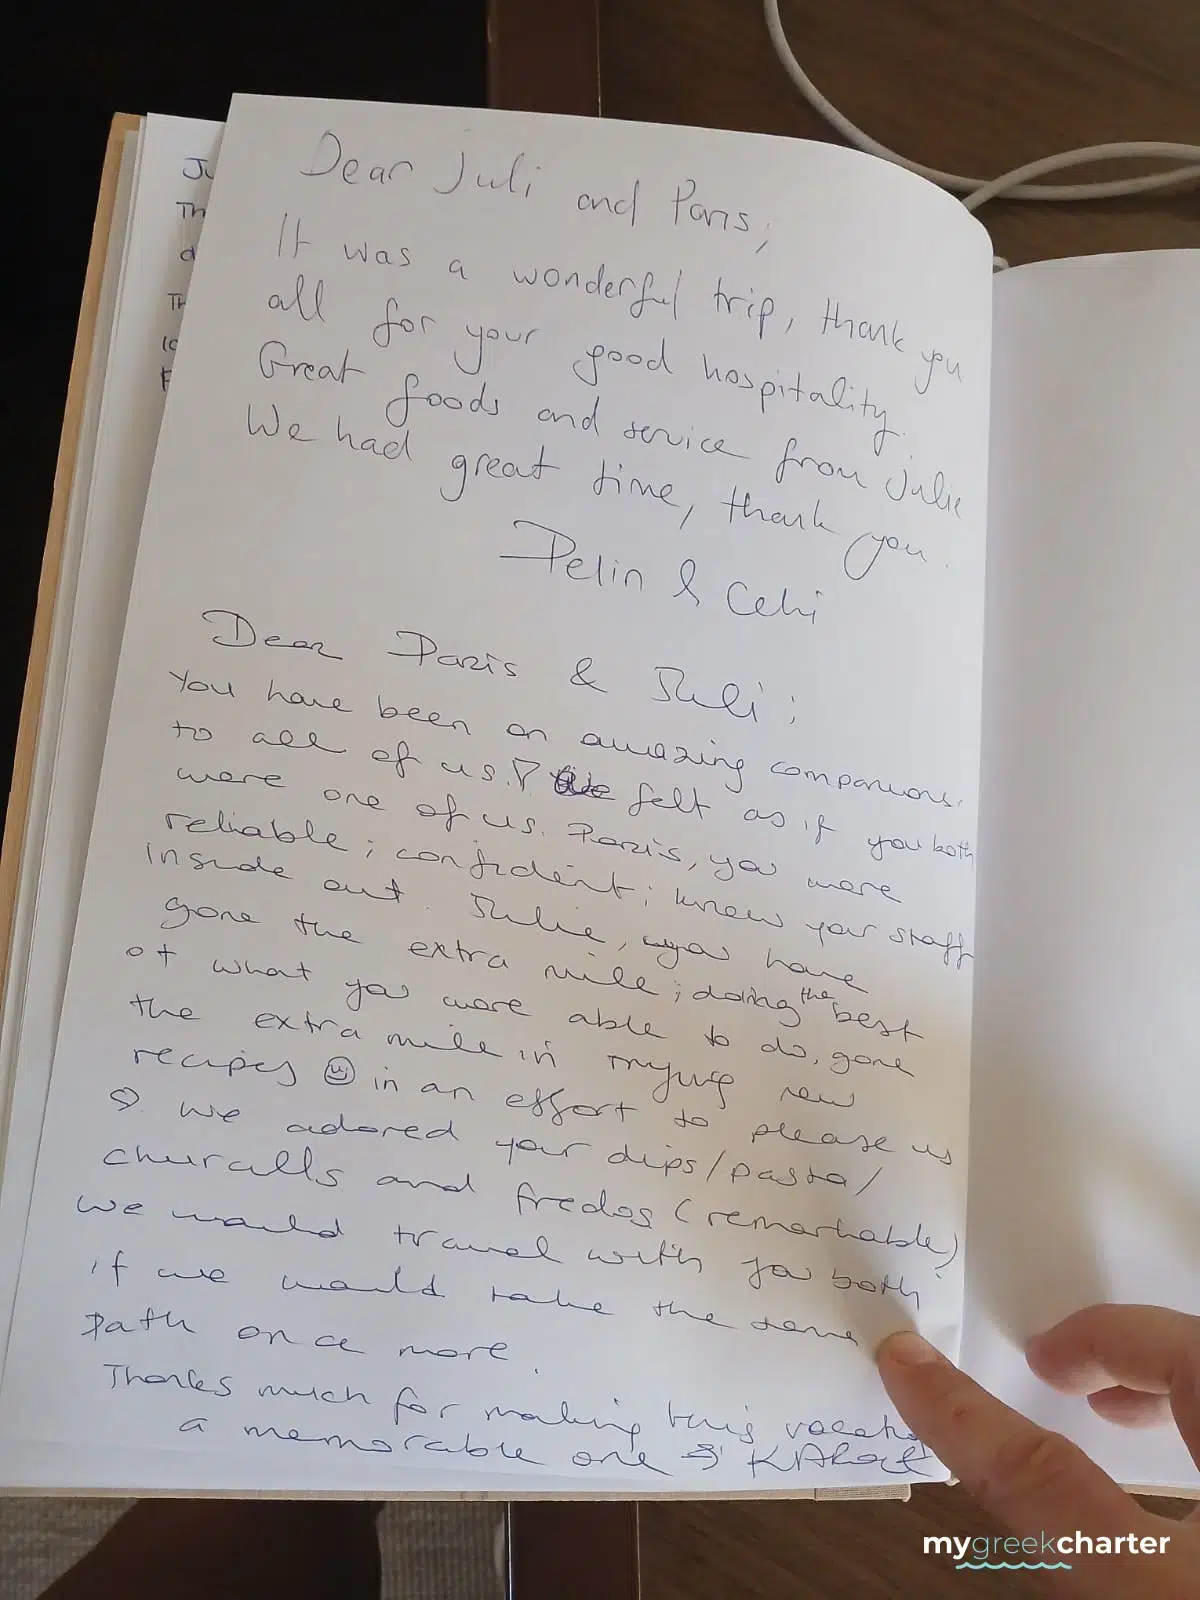 Dear Juli and Paris,
It was a wonderful trip, thank you
all for your good hospitality.
Great foods and service from Julie
We had great time, thank you.
Pelin & Cehi
Dear Paris & Juli;
You have been an amazing companions
to all of us. We felt as if you both
were one of us. Paris, you were
reliable; confident; knew your staff
inside out. Julie, you have
gone the extra mile; doing the best
of what you were able to do, gone
the extra mile in trying new
recipes in an effort to please us
We adored your dips/pasta/
and fredos (remarkable)
We would travel with you both
if we would take the same
path once more.
Thanks much for making this
a memorable one
Ju
Th
d
Th
F
mygreekcharter